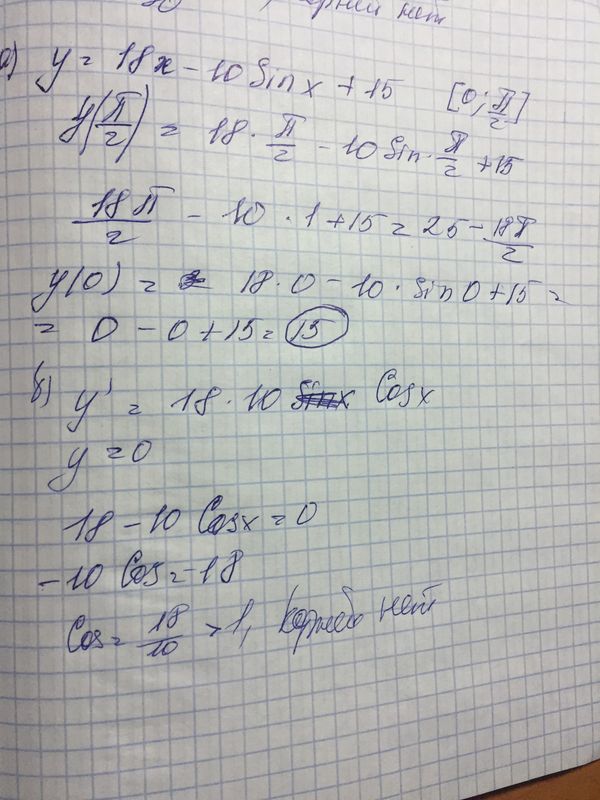 корней нет
а) y = 18x - 10 Sin x + 15 [0; π/2]
y(π/2) = 18 · π/2 - 10 Sin · π/2 + 15
18π/2 - 10 · 1 + 15 = 25 - 18π/2
y(0) = 18 · 0 - 10 · sin 0 + 15 =
= 0 - 0 + 15 = 15
б) y' = 18 · 10 Cos x
y = 0
18 - 10 Cos x = 0
-10 Cos = -18
Cos = 18/10 > 1, корней нет